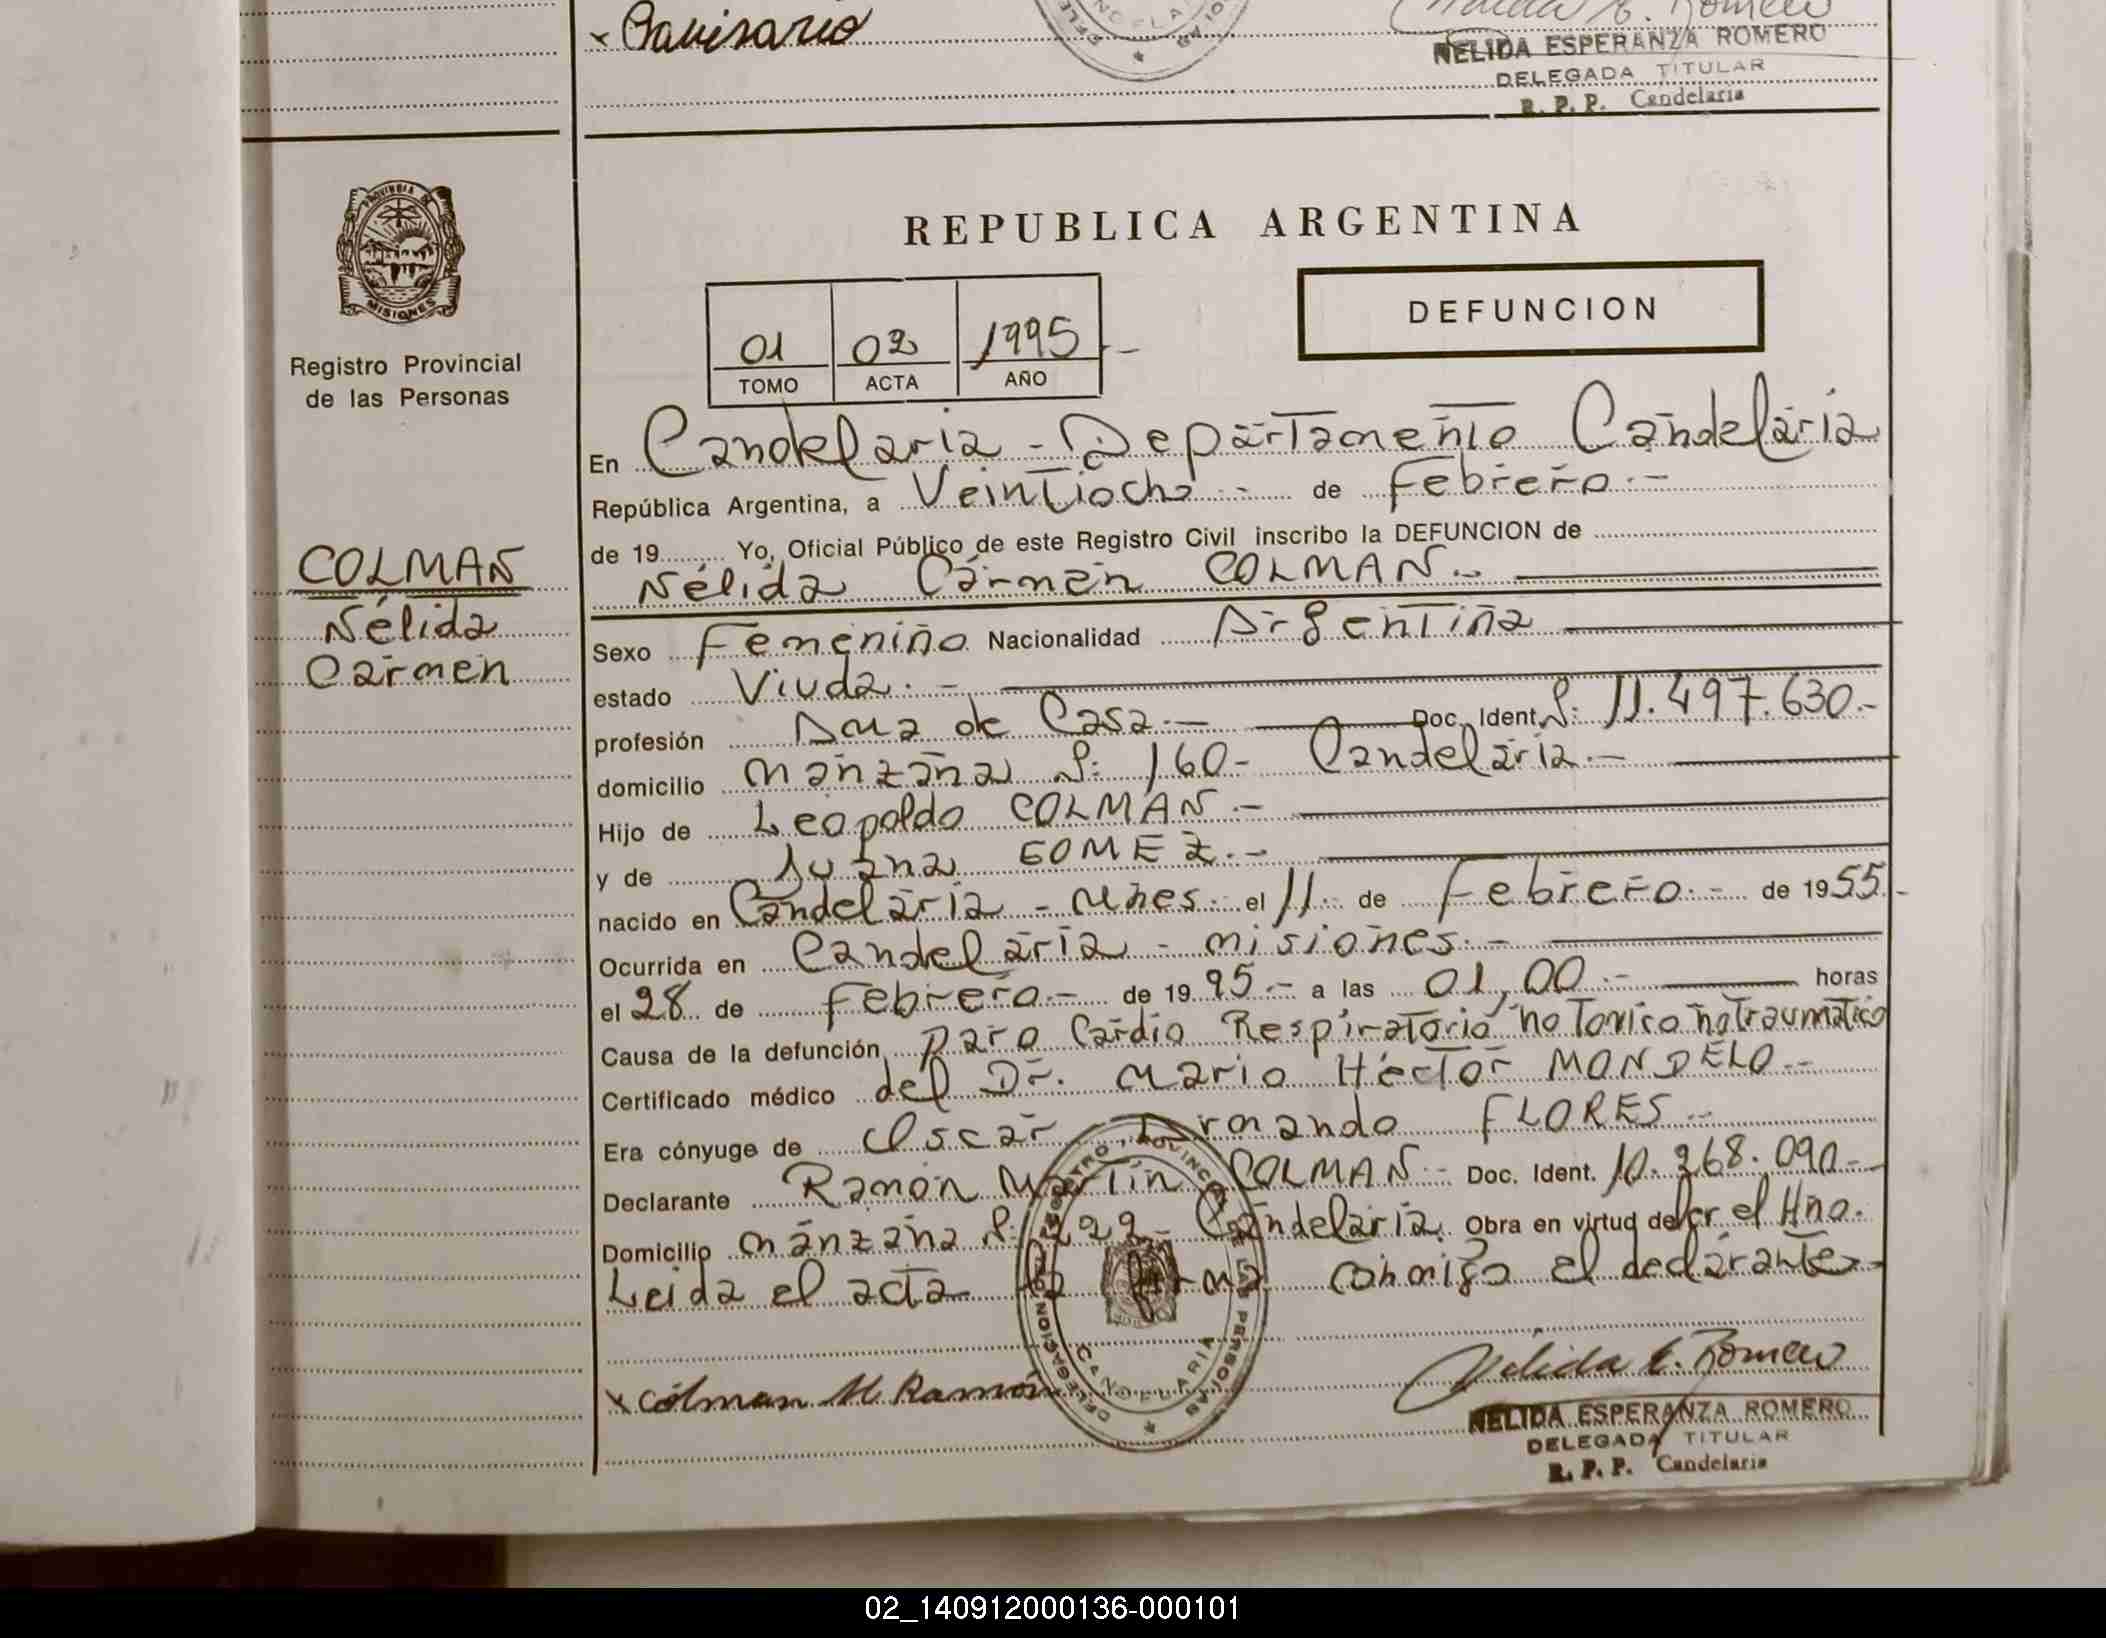 x Candelario
Nelida E. Romero
NELIDA ESPERANZA ROMERO
DELEGADA TITULAR
R. P. P. Candelaria
PROVINCIA DE
MISIONES
Registro Provincial
de las Personas
COLMAN
Nélida
Carmen
REPUBLICA ARGENTINA
DEFUNCION
01 02 1995.-
TOMO ACTA AÑO
En Candelaria - Departamento Candelaria
República Argentina, a Veintiocho.- de Febrero.-
de 19 Yo, Oficial Público de este Registro Civil inscribo la DEFUNCION de
Nélida Carmen COLMAN.-
Sexo Femenino Nacionalidad Argentina
estado Viuda.-
profesión Ama de Casa.- Doc. Ident. Nº: 11.497.630.-
domicilio Manzana Nº: 160- Candelaria.-
Hijo de Leopoldo COLMAN.-
y de Juana GOMEZ.-
nacido en Candelaria - Mnes. el 11. de Febrero.- de 1955.-
Ocurrida en Candelaria - Misiones.-
el 28 de Febrero.- de 19 95.- a las 01,00.- horas
Causa de la defunción paro Cardio Respiratorio no Toxico no Traumatico
Certificado médico del Dr. Mario Héctor MONDELO.-
Era cónyuge de Oscar Armando FLORES.-
Declarante Ramón Martín COLMAN.- Doc. Ident. 10.268.090.-
Domicilio Manzana Nº: 222- Candelaria Obra en virtud de Ser el Hno.
Leida el acta la firma conmigo el declarante.-
x Colman M. Ramón
DELEGACION REGISTRO PROVINCIAL DE LAS PERSONAS
CANDELARIA
Nelida E. Romero
NELIDA ESPERANZA ROMERO
DELEGADA TITULAR
R. P. P. Candelaria
02_140912000136-000101